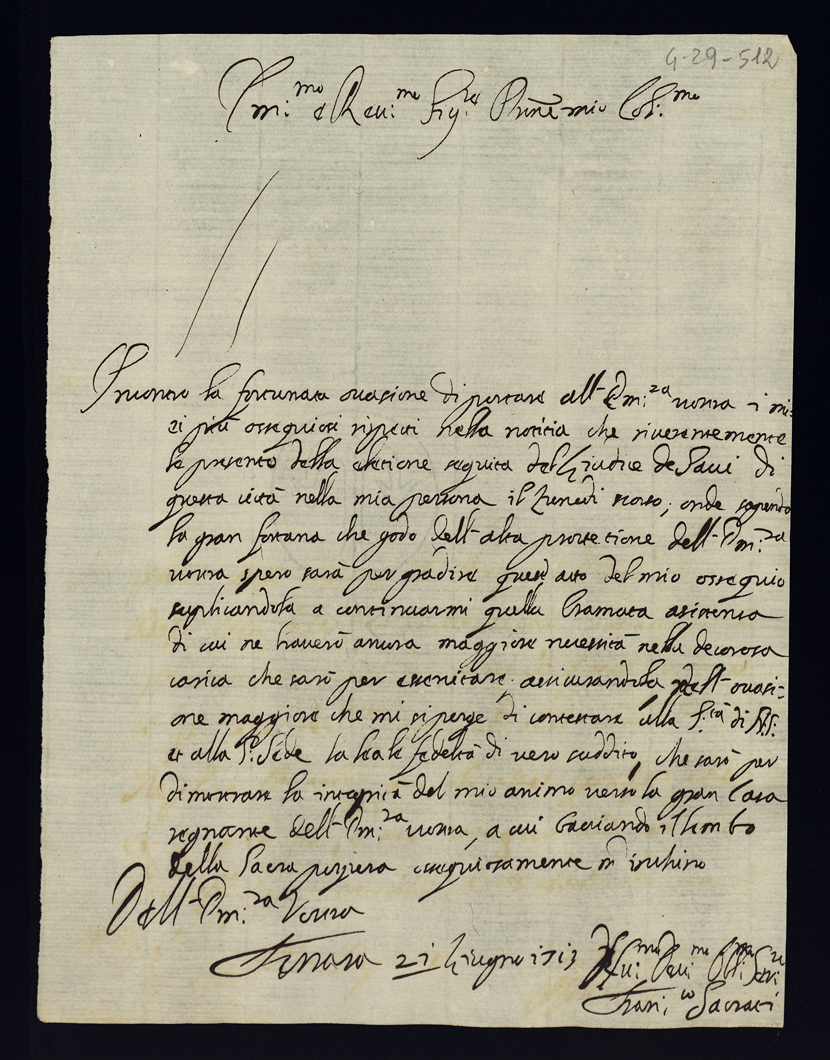 4-29-512
Em:mo e Reu:mo Sig:re Prone mio Col:mo
Incontro la fortunata ocasione di portare all'Em:za uostra i mi:
ei più ossequiosi rispeti nella notitia che riuerentemente
le presento della eletione seguita del Giudice de Saui di
questa città nella mia persona il Lunedì scorso; onde sapendo
la gran fortuna che godo dell'alta protetione dell'Em:za
uostra spero sarà per gradire quest'atto del mio ossequio
suplicandola a continuarmi quella bramata asistenza
di cui ne hauerò ancora maggiore necessità nella decorosa
carica che sarò per esercitare; assicurandola dell'ocasi:
one maggiore che mi si porge di contestare alla S:tà di N.S:
et alla S: Sede la leale fedeltà di uero suddito, che sarò per
dimostrare la integrità del mio animo uerso la gran Casa
regnante dell'Em:za uostra, a cui baciando il lembo
della Sacra porpora ossequiosamente m'inchino
Dell'Em:za Vostra
Ferrara 21 Giugno 1713
Deu:mo Obl:mo Ser:re
Fran:co Sacrati